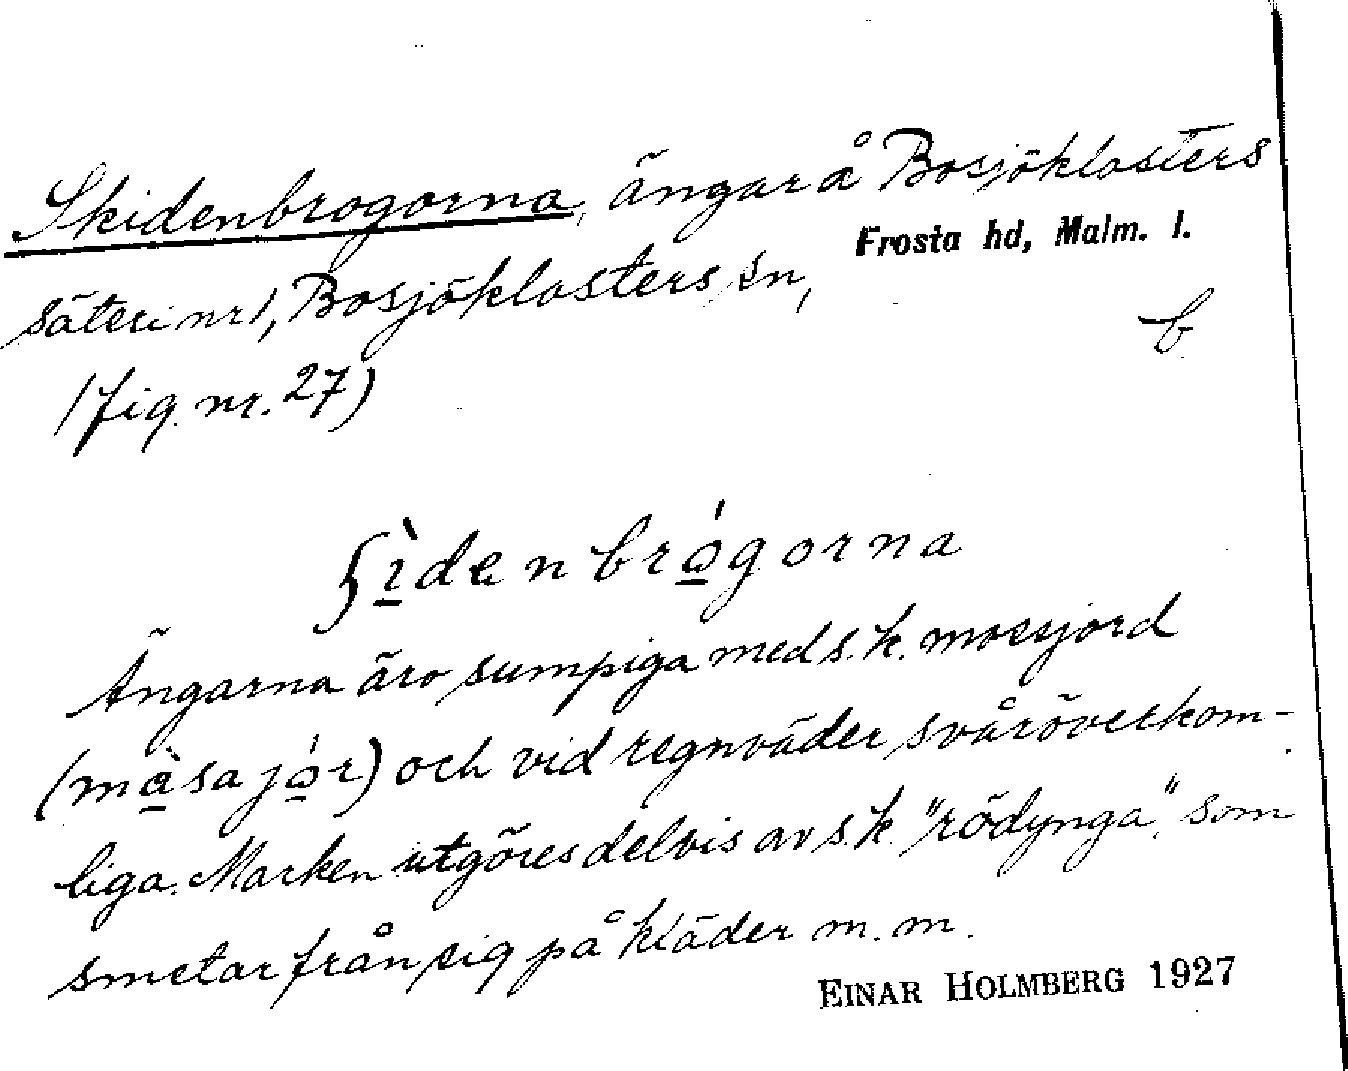 Skidenbrogorna, ängar å Bosjöklosters
Frosta hd, Malm. l.
säteri nr 1, Bosjöklosters sn,
b
(fig. nr. 27)
ʃì̱den brȯ́gorna
Ängarna äro sumpiga med s.k. mossjord
(mà̱sa jó̱r) och vid regnväder svåröverkom-
liga. Marken utgöres delvis av s.k. "rödynga", som
smetar från sig på kläder m.m.
EINAR HOLMBERG 1927